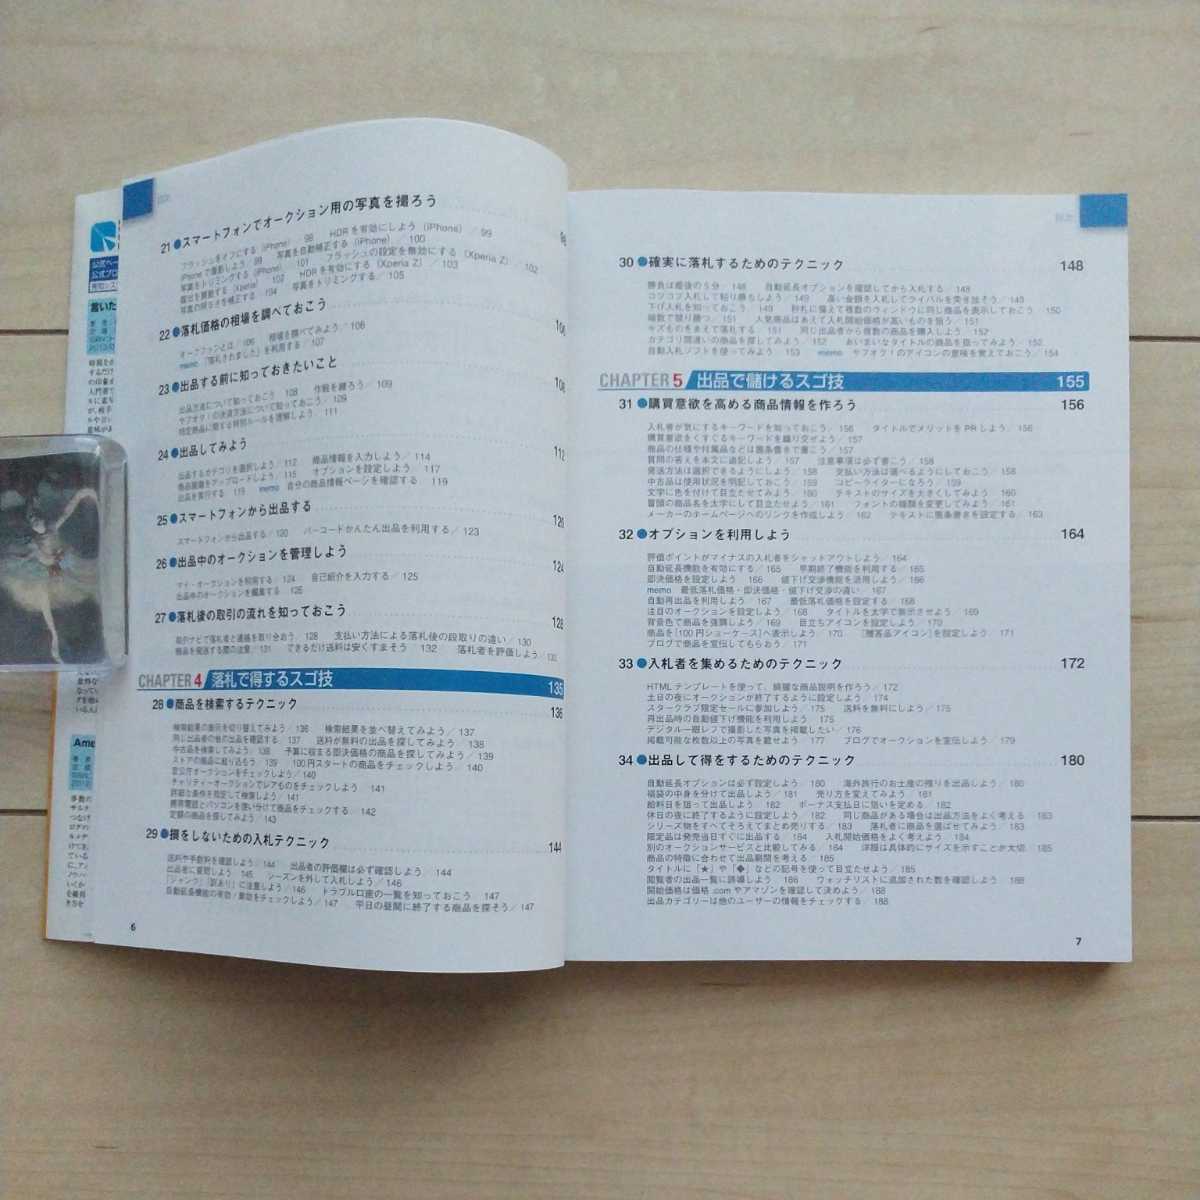 21●スマートフォンでオークション用の写真を撮ろう 98
フラッシュをオフにする（iPhone） 98 HDRを有効にしよう（iPhone）／99
iPhoneで撮影しよう 99 写真を自動補正する（iPhone）／100
写真をトリミングする（iPhone） 101 フラッシュの設定を無効にする（Xperia Z）／102
露出を調整する（Xperia） 102 HDRを有効にする（Xperia Z）／103
写真の明るさを補正する 104 写真をトリミングする／105
22●落札価格の相場を調べておこう 106
オークファンとは／106 相場を調べてみよう／106
memo 「落札されました」を利用する／107
23●出品する前に知っておきたいこと 108
出品方法について知っておこう 108 作戦を練ろう／109
ヤフオク!の決済方法について知っておこう／109
特定商品に関する特別ルールを理解しよう 111
24●出品してみよう 112
出品するカテゴリを選択しよう／112 商品情報を入力しよう／114
商品画像をアップロードしよう／115 オプションを設定しよう 117
出品を実行する 119 memo 自分の商品情報ページを確認する 119
25●スマートフォンから出品する 120
スマートフォンから出品する／120 バーコードかんたん出品を利用する／123
26●出品中のオークションを管理しよう 124
マイ・オークションを利用する／124 自己紹介を入力する／125
出品中のオークションを編集する 126
27●落札後の取引の流れを知っておこう 128
取引ナビで落札者と連絡を取り合おう／128 支払い方法による落札後の段取りの違い／130
商品を発送する際の注意／131 できるだけ送料は安くすまそう 132 落札者を評価しよう／133
CHAPTER 4 落札で得するスゴ技 135
28●商品を検索するテクニック 136
検索結果の表示を切り替えてみよう／136 検索結果を並べ替えてみよう／137
同じ出品者の他の出品を確認する 137 送料が無料の出品を探してみよう／138
中古品を検索してみよう／138 予算に収まる即決価格の商品を探してみよう／139
ストアの商品に絞り込もう／139 100円スタートの商品をチェックしよう／140
官公庁オークションをチェックしよう／140
チャリティーオークションでレアものをチェックしよう 141
詳細な条件を指定して検索しよう／141
携帯電話とパソコンを使い分けて商品をチェックする／142
定額の商品を探してみよう／143
29●損をしないための入札テクニック 144
送料や手数料を確認しよう／144 出品者の評価欄は必ず確認しよう／144
出品者に質問しよう 145 シーズンを外して入札しよう／146
「ジャンク」「訳あり」に注意しよう／146 トラブル口座の一覧を知っておこう／147
自動延長機能の有効／無効をチェックしよう／147 平日の昼間に終了する商品を探そう／147
6
30●確実に落札するためのテクニック 148
勝負は最後の5分／148 自動延長オプションを確認してから入札する／148
コツコツ入札して粘り勝ちしよう／149 高い金額を入札してライバルを突き放そう／149
下げ入札を知っておこう／149 秒札に備えて複数のウィンドウに同じ商品を表示しておこう 150
端数で競り勝つ／151 人気商品はあえて入札開始価格が高いものを狙う／151
キズものをあえて落札する／151 同じ出品者から複数の商品を購入しよう／152
カテゴリ間違いの商品を探してみよう／152 あいまいなタイトルの商品を狙ってみよう／152
自動入札ソフトを使ってみよう／153 memo ヤフオク!のアイコンの意味を覚えておこう／154
CHAPTER 5 出品で儲けるスゴ技 155
31●購買意欲を高める商品情報を作ろう 156
入札者が気にするキーワードを知っておこう／156 タイトルでメリットをPRしよう／156
購買意欲をくすぐるキーワードを織り交ぜよう／157
商品の仕様や付属品などは箇条書きで書こう／157
質問の答えを本文に追記しよう／157 注意事項は必ず書こう／158
発送方法は選択できるようにしよう／158 支払い方法は選べるようにしておこう／158
中古品は使用状況を明記しておこう／159 コピーライターになろう／159
文字に色を付けて目立たせてみよう／160 テキストのサイズを大きくしてみよう 160
冒頭の商品名を太字にして目立たせよう／161 フォントの種類を変更してみよう／161
メーカーのホームページへのリンクを作成しよう／162 テキストに箇条書きを設定する／163
32●オプションを利用しよう 164
評価ポイントがマイナスの入札者をシャットアウトしよう／164
自動延長機能を有効にする／165 早期終了機能を利用する／165
即決価格を設定しよう 166 値下げ交渉機能を活用しよう／166
memo 最低落札価格・即決価格・値下げ交渉の違い／167
自動再出品を利用しよう／167 最低落札価格を設定する／168
注目のオークションを設定しよう／168 タイトルを太字で表示させよう／169
背景色で商品を強調しよう／169 目立ちアイコンを設定しよう／170
商品を［100円ショーケース］へ表示しよう／170 ［贈答品アイコン］を設定しよう／171
ブログで商品を宣伝してもらおう／171
33●入札者を集めるためのテクニック 172
HTMLテンプレートを使って、綺麗な商品説明を作ろう／172
土日の夜にオークションが終了するように設定しよう／174
スタークラブ限定セールに参加しよう／175 送料を無料にしよう／175
再出品時の自動値下げ機能を利用しよう 175
デジタル一眼レフで撮影した写真を掲載したい／176
掲載可能な枚数以上の写真を載せよう／177 ブログでオークションを宣伝しよう／179
34●出品して得をするためのテクニック 180
自動延長オプションは必ず設定しよう／180 海外旅行のお土産の残りを出品しよう／180
福袋の中身を分けて出品しよう／181 売り方を変えてみよう／181
給料日を狙って出品しよう／182 ボーナス支払日に狙いを定める／182
休日の夜に終了するように設定しよう／182 同じ商品がある場合は出品方法をよく考える／183
シリーズ物をすべてそろえてまとめ売りする／183 落札者に商品を選ばせてみよう／183
限定品は発売日当日すぐに出品する／184 入札開始価格をよく考えよう／184
別のオークションサービスと比較してみる／184 洋服は具体的にサイズを示すことが大切 185
商品の特徴に合わせて出品期間を考える／185
タイトルに「★」や「◆」などの記号を使って目立たせよう／185
閲覧者の出品一覧に誘導しよう／186 ウォッチリストに追加された数を確認しよう／188
開始価格は価格.comやアマゾンを確認して決めよう／188
出品カテゴリーは他のユーザーの情報をチェックする／188
7